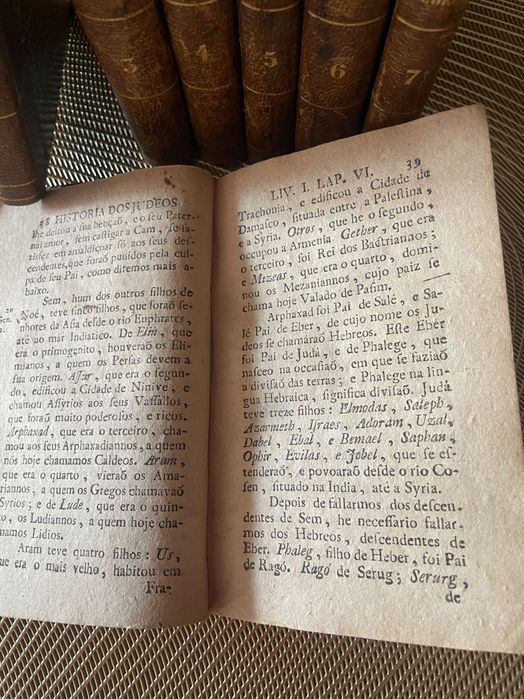 3
4
5
6
7
38 HISTORIA DOS JUDEOS
lhe deitou a sua bençaõ, e o seu Pater-
nal amor, sem castigar a Cam, se sa-
tisfez em amaldiçoar só aos seus des-
cendentes, que foraõ punidos pela cul-
pa de seu Pai, como diremos mais a-
baixo.
Sem, hum dos outros filhos de
Noé, teve sinco filhos, que foraõ se-
nhores da Asia desde o rio Euphrates,
até ao mar Indiatico. De Elin, que
era o primogenito, houveraõ os Eli-
mianos, a quem os Persas devem a
sua origem. Asser, que era o segun-
do, edificou a Cidade de Ninive, e
chamou Assyrios aos seus Vassallos,
que foraõ muito poderosos, e ricos.
Arphaxad, que era o terceiro, cha-
mou aos seus Arphaxadiannos, a quem
nós hoje chamamos Caldeos. Aram,
que era o quarto, vieraõ os Ama-
riannos, a quem os Gregos chamavaõ
Syrios; e de Lude, que era o quin-
to, os Ludiannos, a quem hoje cha-
mamos Lidios.
Aram teve quatro filhos: Us,
que era o mais velho, habitou em
Fra-
LIV. I. CAP. VI. 39
Trachonia, e edificou a Cidade de
Damasco, situada entre a Palestina,
e a Syria. Otros, que he o segundo,
occupou a Armenia. Gether, que era
o terceiro, foi Rei dos Bactriannos;
e Mizeas, que era o quarto, domi-
nou os Mezaniannos, cujo paiz se
chama hoje Valado de Pasim.
Arphaxad foi Pai de Salé, e Sa-
lé Pai de Eber, de cujo nome os Ju-
deos se chamáraõ Hebreos. Este Eber
foi Pai de Judá, e de Phalege, que
nasceo na occasiaõ, em que se faziaõ
a divisaõ das terras; e Phalege na lin-
gua Hebraica, significa divisaõ. Judá
teve treze filhos: Elmodas, Saleph,
Azarmeth, Israes, Adoram, Uzal,
Dabel, Ebal, e Bemael, Saphan,
Ophir, Evilas, e Jobel, que se es-
tenderaõ, e povoaraõ desde o rio Co-
sen, situado na India, até a Syria.
Depois de fallarmos dos descen-
dentes de Sem, he necessario fallar-
mos dos Hebreos, descendentes de
Eber. Phaleg, filho de Heber, foi Pai
de Ragó. Ragó de Serug; Serurg,
de